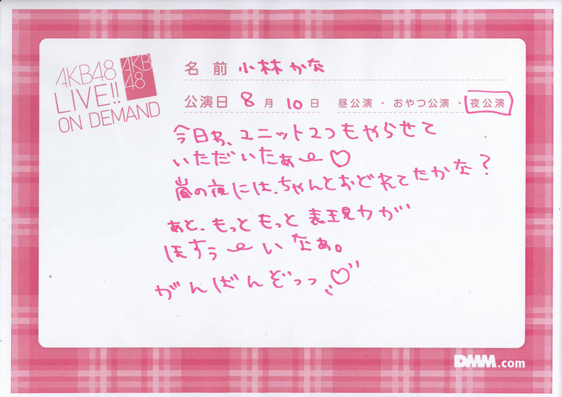 AKB48
LIVE!!
ON DEMAND
AKB
48
名前 小林かな
公演日 8月10日 昼公演・おやつ公演・夜公演
今日わ、ユニット2つもやらせて
いただいたぁー♡
嵐の夜には、ちゃんとおどれてたかな?
あと、もっともっと表現力が
ほすぅーいなぁ。
がんばんぞっっ♡
DMM.com